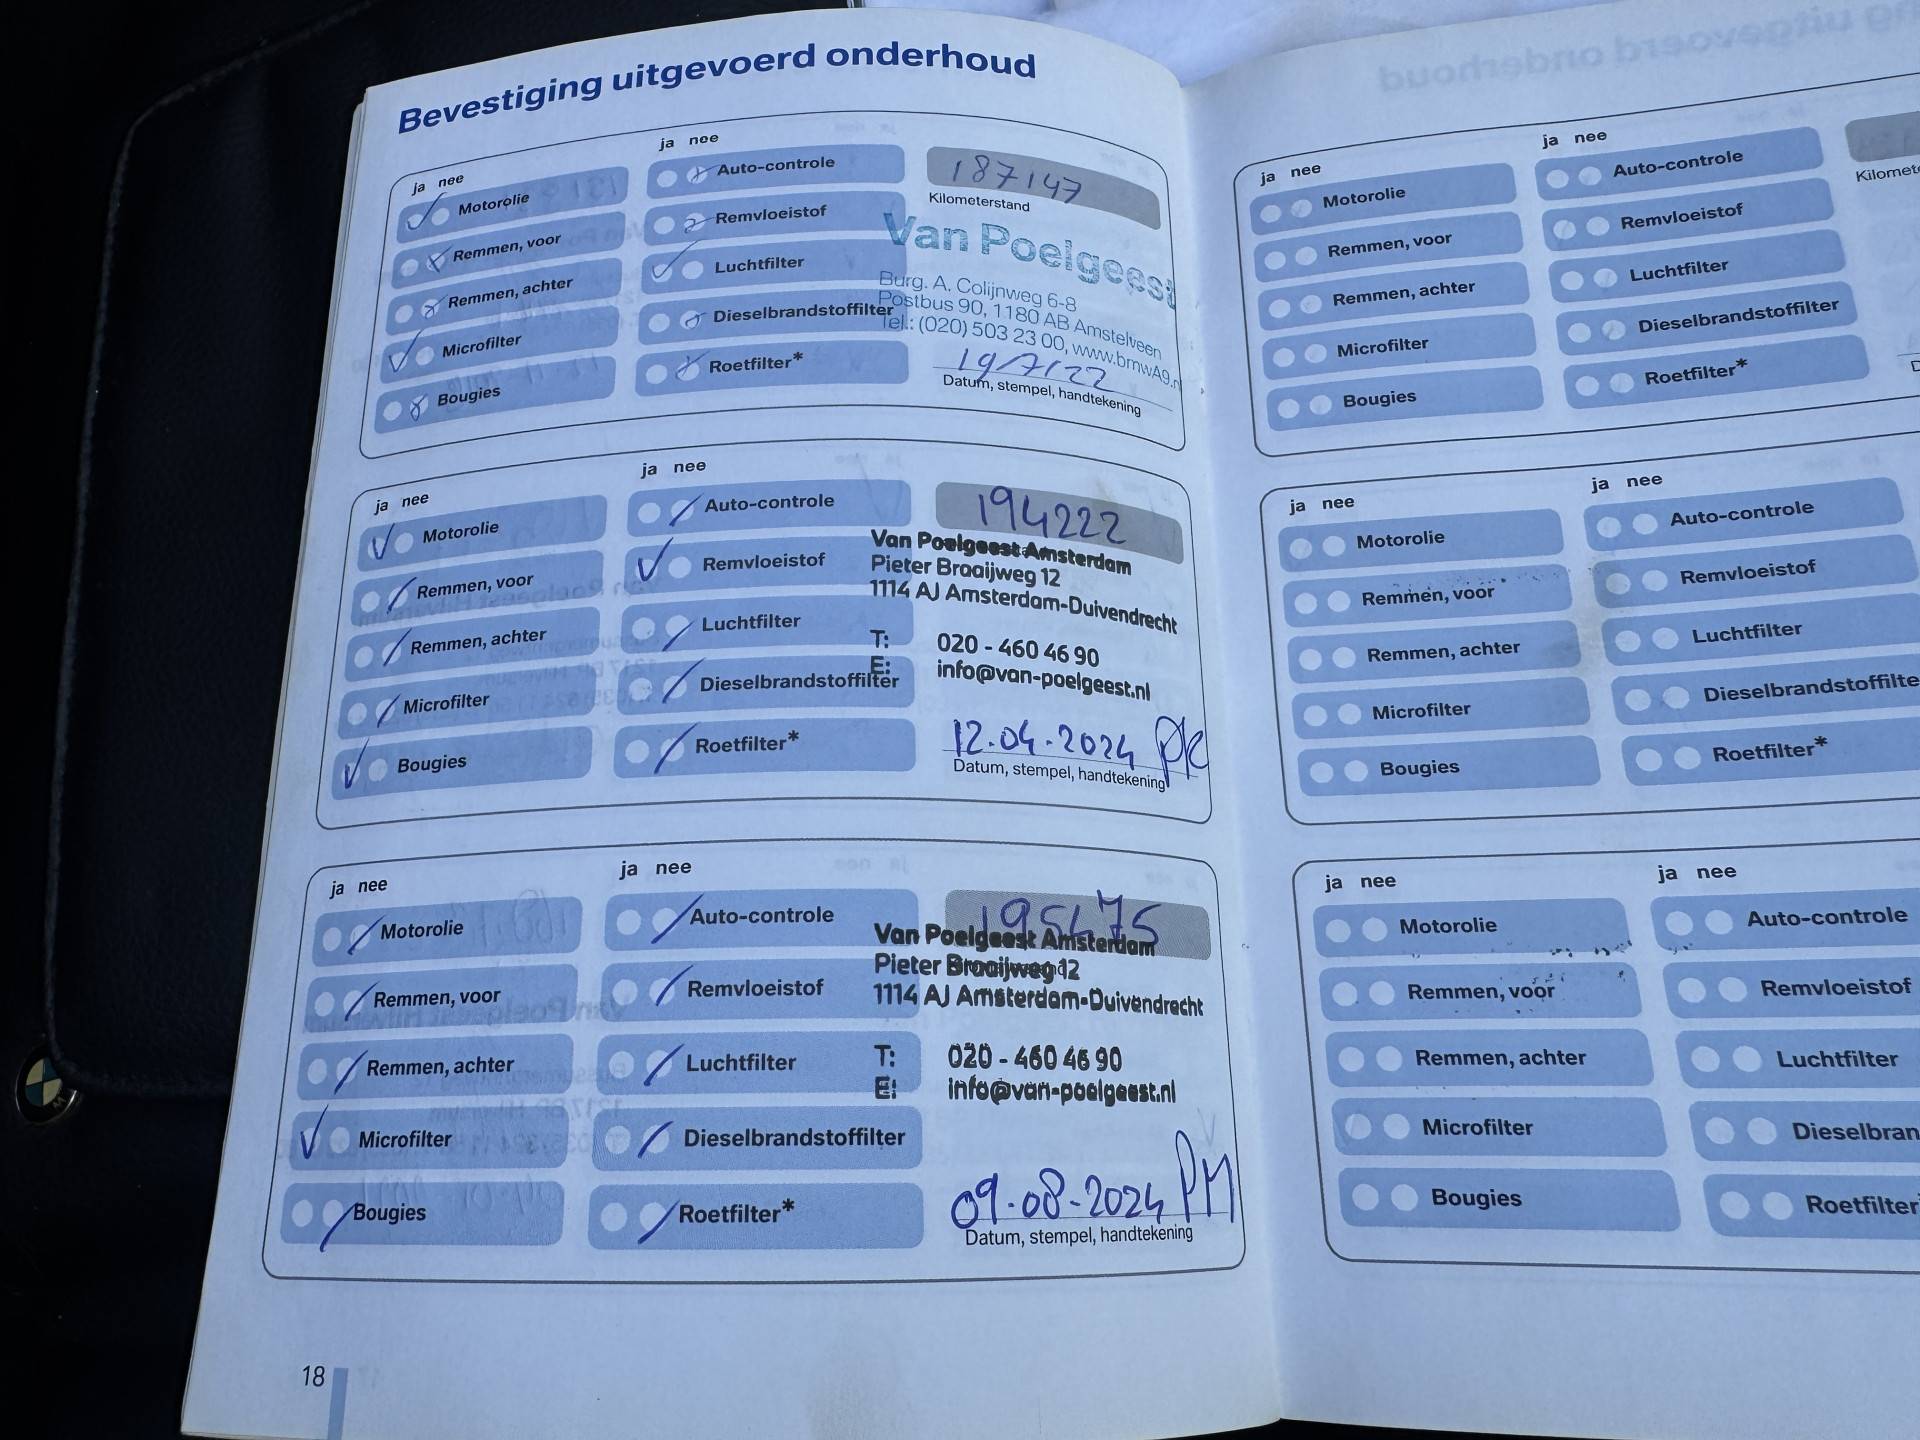 Bevestiging uitgevoerd onderhoud
ja nee
Motorolie
Remmen, voor
Remmen, achter
Microfilter
Bougies
ja nee
Auto-controle
Remvloeistof
Luchtfilter
Dieselbrandstoffilter
Roetfilter*
187147
Kilometerstand
Van Poelgeest
Burg. A. Colijnweg 6-8
Postbus 90, 1180 AB Amstelveen
Tel.: (020) 503 23 00, www.bmwA9.n
19/7/22
Datum, stempel, handtekening
ja nee
Motorolie
Remmen, voor
Remmen, achter
Microfilter
Bougies
ja nee
Auto-controle
Remvloeistof
Luchtfilter
Dieselbrandstoffilter
Roetfilter*
194222
Van Poelgeest Amsterdam
Pieter Braaijweg 12
1114 AJ Amsterdam-Duivendrecht
T: 020 - 460 46 90
E: info@van-poelgeest.nl
12.04.2024
Datum, stempel, handtekening
ja nee
Motorolie
Remmen, voor
Remmen, achter
Microfilter
Bougies
ja nee
Auto-controle
Remvloeistof
Luchtfilter
Dieselbrandstoffilter
Roetfilter*
195475
Van Poelgeest Amsterdam
Pieter Braaijweg 12
1114 AJ Amsterdam-Duivendrecht
T: 020 - 460 46 90
E: info@van-poelgeest.nl
09.08-2024 PM
Datum, stempel, handtekening
18
ja nee
Motorolie
Remmen, voor
Remmen, achter
Microfilter
Bougies
ja nee
Auto-controle
Remvloeistof
Luchtfilter
Dieselbrandstoffilter
Roetfilter*
Kilomete
ja nee
Motorolie
Remmen, voor
Remmen, achter
Microfilter
Bougies
ja nee
Auto-controle
Remvloeistof
Luchtfilter
Dieselbrandstoffilte
Roetfilter*
ja nee
Motorolie
Remmen, voor
Remmen, achter
Microfilter
Bougies
ja nee
Auto-controle
Remvloeistof
Luchtfilter
Dieselbran
Roetfilter